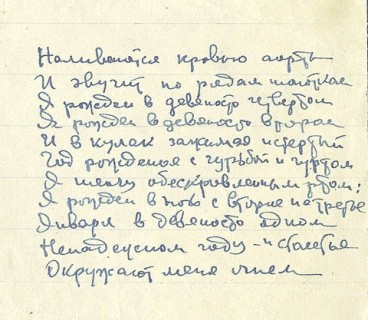 Наливаются кровью аорты
И звучит по рядам шепотком
Я рожден в девяносто четвертом
Я рожден в девяносто втором
И в кулак зажимая истертый
Год рожденья с гурьбой и гуртом
Я шепчу обескровленным ртом:
Я рожден в ночь с второе на третье
Января в девяносто одном
Ненадежном году – и столетья
Окружают меня огнем